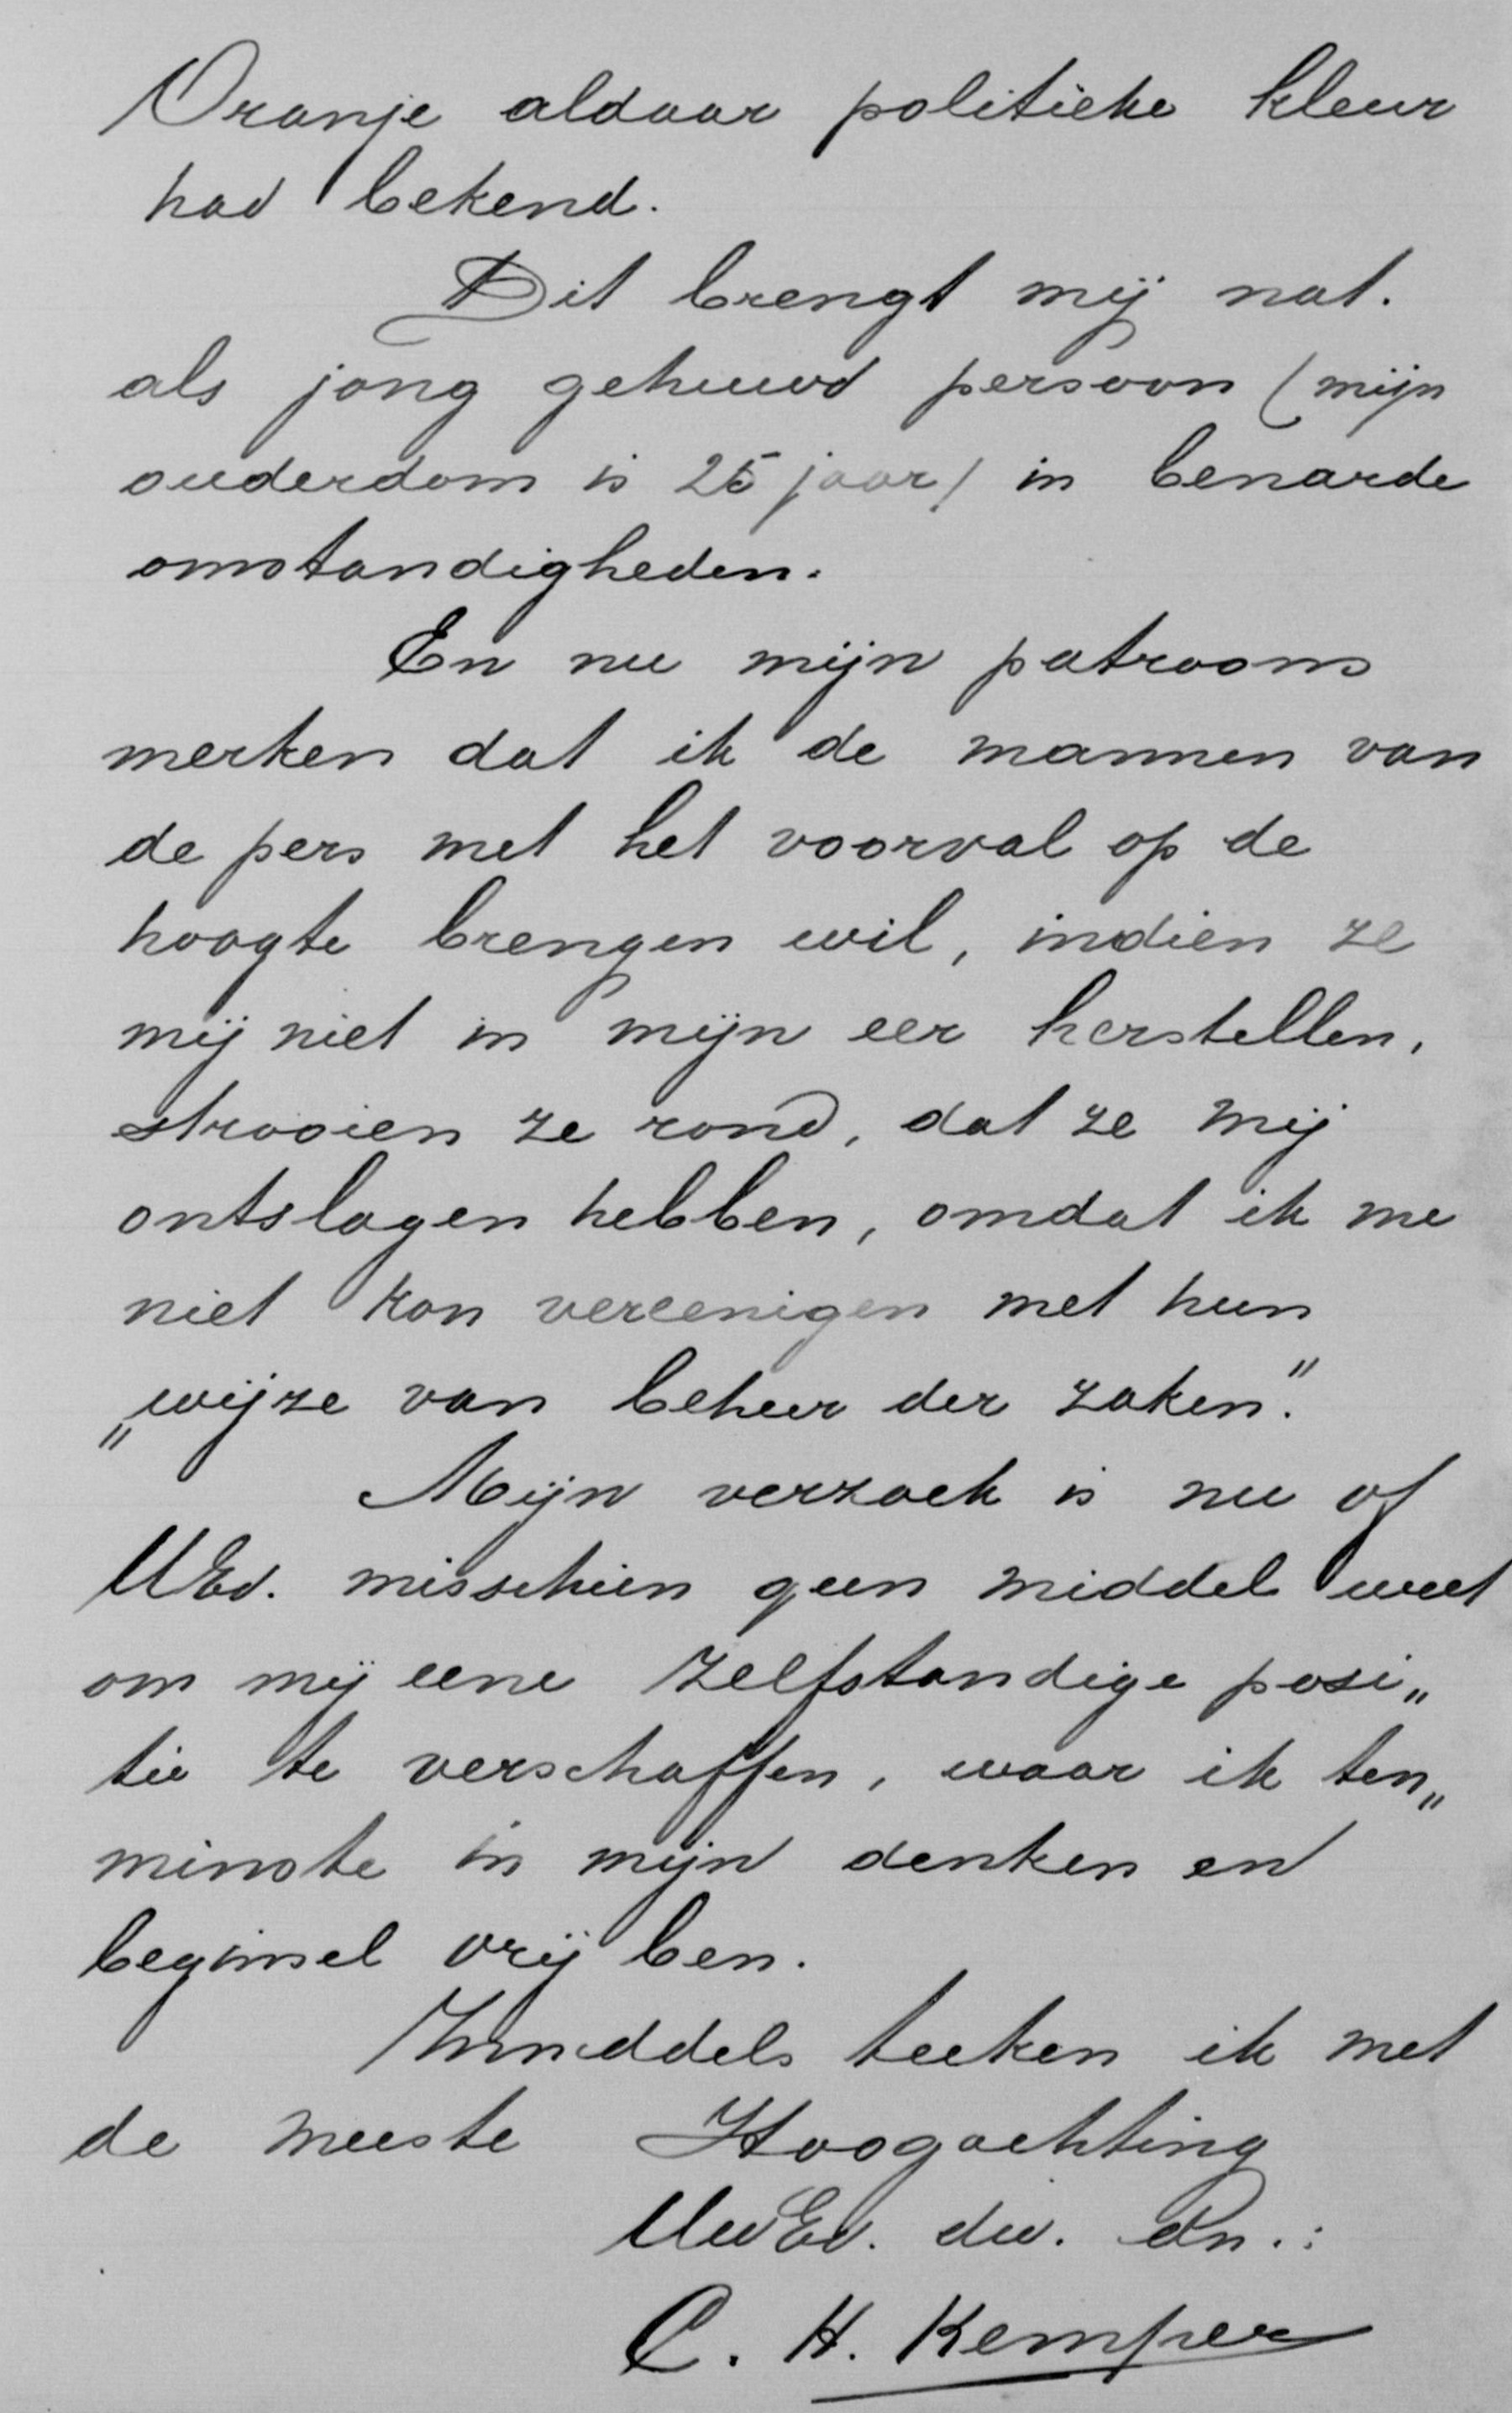 Oranje aldaar politieke kleur
had bekend.
Dit brengt mij nat.
als jong gehuwd persoon (mijn
ouderdom is 25 jaar) in benarde
omstandigheden.
En nu mijn patroons
merken dat ik de mannen van
de pers met het voorval op de
hoogte brengen wil, indien ze
mij niet in mijn eer herstellen,
strooien ze rond, dat ze mij
ontslagen hebben, omdat ik me
niet kon vereenigen met hun
„wijze van beheer der zaken."
Mijn verzoek is nu of
UEd. misschien geen middel weet
om mij eene zelfstandige posi„
tie te verschaffen, waar ik ten„
minste in mijn denken en
beginsel vrij ben.
Inmiddels teeken ik met
de meeste Hoogachting
UwEd. dw. dn.:
C. H. Kemper